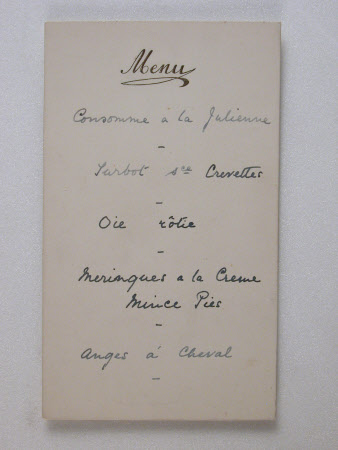 Menu
Consomme à la Julienne
-
Turbot sce Crevettes
-
Oie rôtie
-
Meringues a la Creme
Mince Pies
-
Anges à Cheval
-